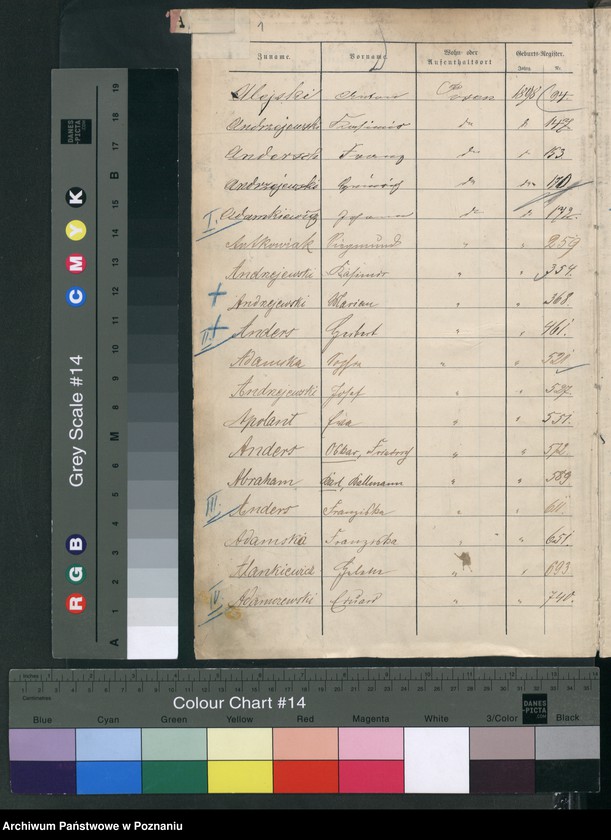 1
Zuname.
Vorname
Wohn- oder
Aufenthaltsort
Geburts-Register.
Jahrg.
Nr.
Alejski Posen 1898 94.
Andrzejewski Kasimir do
Anderseh Franz do 153.
Andrzejewski Heinrich do 170
I. Adamkiewicz Johann do 192.
Antkowiak Sigismund " " 259
Andrzejewski Kasimir " " 354.
Andrzejewski Marian " " 368.
II. Anders Herbert " " 461.
Adamska Sophie " " 521
Andrzejewski Josef " " 527
Apolant " " 551.
Anders Oskar, Friedrich " " 572.
Abraham Karl, Kallmann " " 589
III. Anders Franziska " " 611.
Adamska Franziska " " 651.
" " 693
IV. Eduard " " 740.
Grey Scale #14
DANES-PICTA.COM
R G B C M Y K
A 1 2 3 4 5 6 M 8 9 10 11 12 13 14 15 B 17 18 19
Inches
Centimetres
Colour Chart #14
DANES-PICTA.COM
Blue Cyan Green Yellow Red Magenta White 3/Color Black
Archiwum Państwowe w Poznaniu